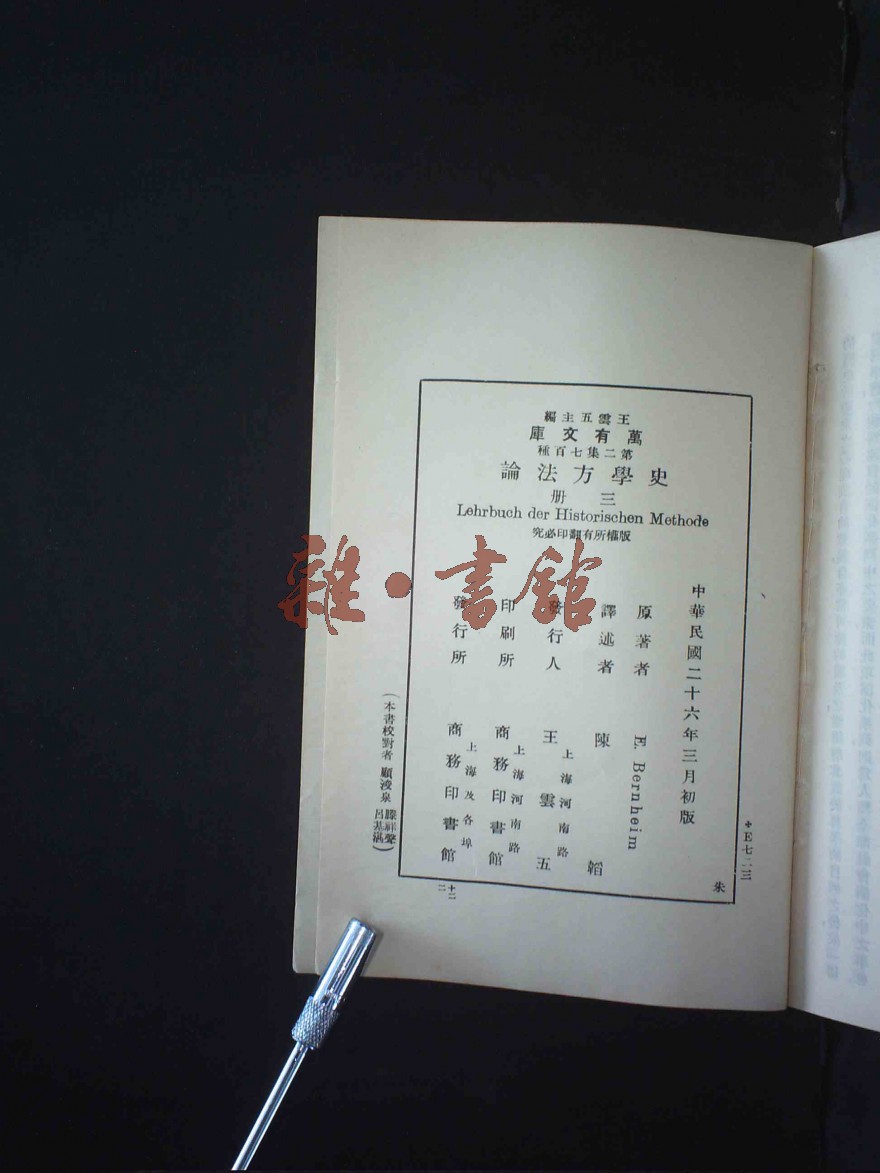 王雲五主編
萬有文庫
第二集七百種
史學方法論
三册
Lehrbuch der Historischen Methode
版權所有翻印必究
中華民國二十六年三月初版
原著者 E. Bernheim
譯述者 陳韜
發行人 王雲五
上海河南路
印刷所 商務印書館
上海河南路
發行所 商務印書館
上海及各埠
(本書校對者 顧浚泉
❖E七二三
朱
雜·書館